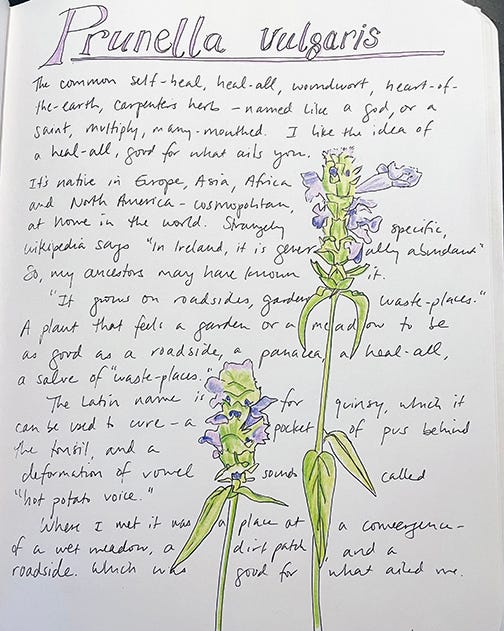 Prunella vulgaris
The common self-heal, heal-all, woundwort, heart-of-
the-earth, carpenters herb - named like a god, or a
saint, multiply, many-mouthed. I like the idea of
a heal-all, good for what ails you.
It's native in Europe, Asia, Africa
and North America - cosmopolitan,
at home in the world. Strangely specific,
wikipedia says "In Ireland, it is generally abundant"
So, my ancestors may have known it.
"It grows on roadsides, gardens waste-places."
A plant that feels a garden or a meadow to be
as good as a roadside, a panacea, a heal-all,
a salve of "waste-places."
The Latin name is for quinsy, which it
can be used to cure - a pocket of pus behind
the tonsil, and a
deformation of vowel sounds called
"hot potato voice."
Where I met it was a place at a convergence -
of a wet meadow, a dirt patch, and a
roadside. Which was good for what ailed me.